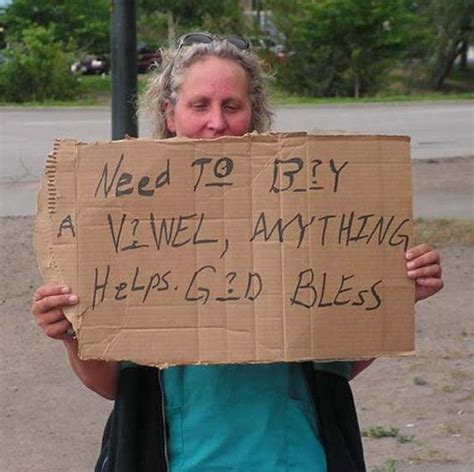 Need TO B?Y
A V?WEL, ANYTHING
HeLPS. G?D BLess